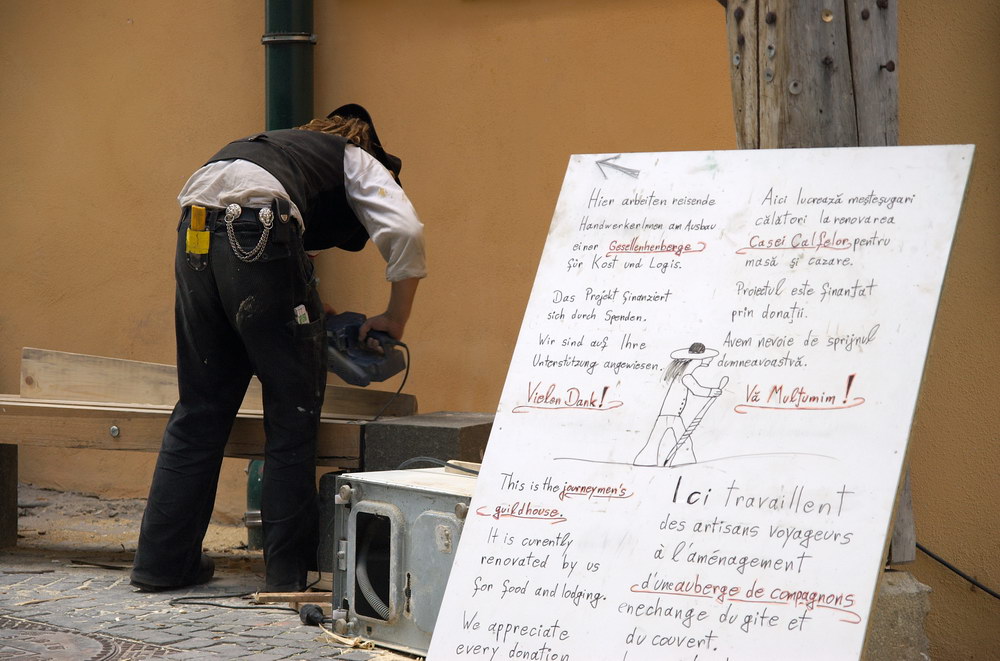 Hier arbeiten reisende
HandwerkerInnen am Ausbau
einer Gesellenherberge
für Kost und Logis.
Das Projekt finanziert
sich durch Spenden.
Wir sind auf Ihre
Unterstützung angewiesen.
Vielen Dank!
Aici lucrează meșteșugari
călători la renovarea
Casei Calfelor pentru
masă și cazare.
Proiectul este finanțat
prin donații.
Avem nevoie de sprijnul
dumneavoastvă.
Vă Mulțumim!
This is the journeymen's
guildhouse.
It is curently
renovated by us
for food and lodging.
We appreciate
every donation
Ici travaillent
des artisans voyageurs
à l'aménagement
d'une auberge de compagnons
enechange du gite et
du couvert.